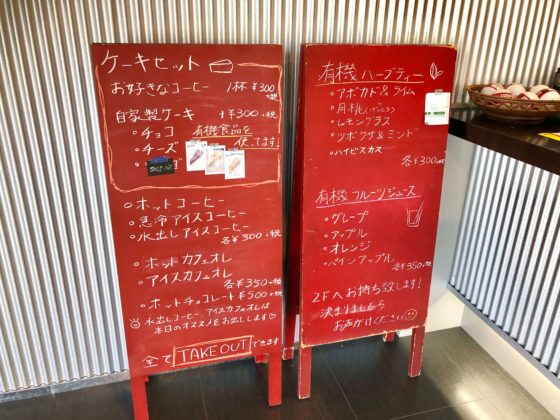 ケーキセット
お好きなコーヒー 1杯 ¥300
+税
自家製ケーキ +¥300+税
・チョコ 有機食品を
・チーズ 使ってます!
SOLD OUT
○ホットコーヒー
○急冷アイスコーヒー
○水出しアイスコーヒー
各¥300+税
○ホットカフェオレ
○アイスカフェオレ
各¥350+税
○ホットチョコレート¥500+税
水出しコーヒー、アイスカフェオレは
本日のオススメをお出します♡
全て TAKE OUT できます
有機ハーブティー
・アボカド&ライム
・月桃(げっとう)
・レモングラス
・ツボクサ&ミント
・ハイビスカス
各¥300+税
有機フルーツジュース
・グレープ
・アップル
・オレンジ
・パインアップル
各¥350+税
2Fへお持ち致します!
決まりましたら
お声かけください